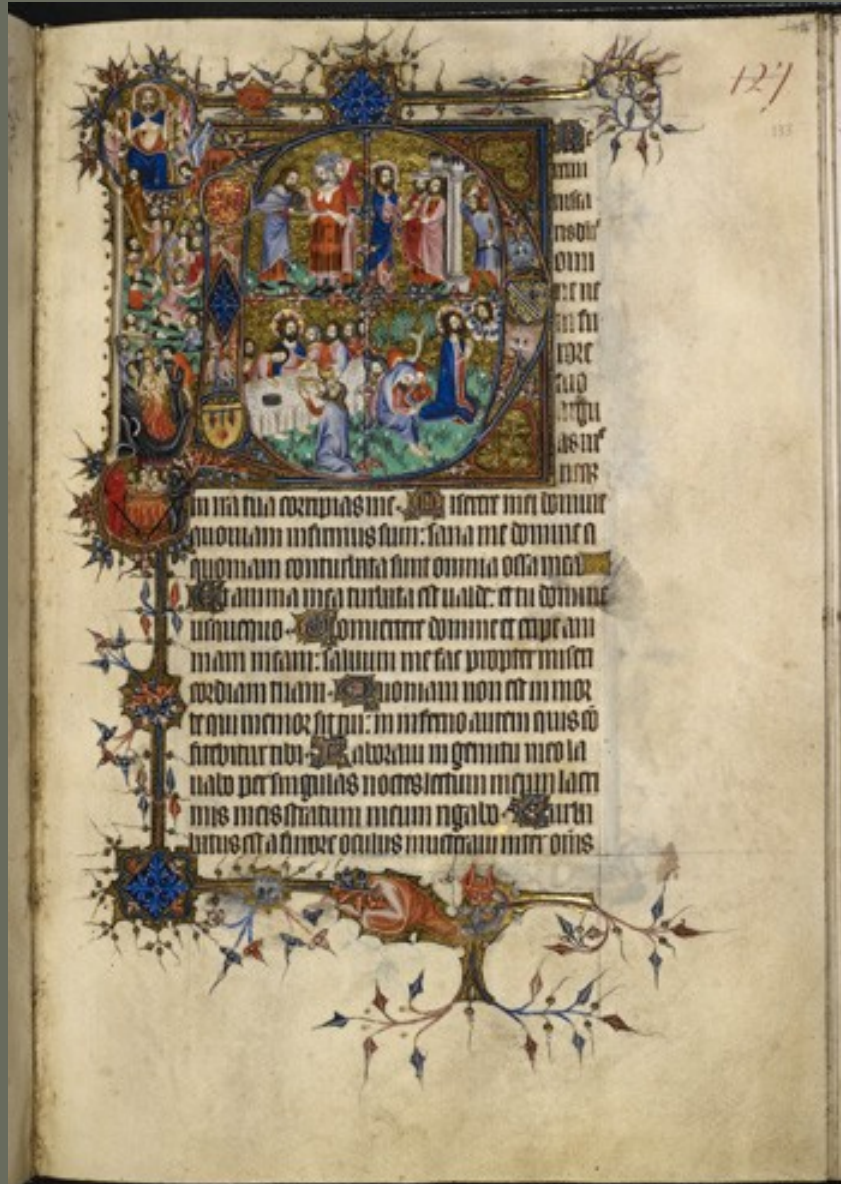 127
133
Ne
remi
nisca
ris dne
Domi
ne ne
in fu
rore
tuo
argu
as me
neqz
in ira tua corripias me. Miserere mei domine
quoniam infirmus sum: sana me domine
quoniam conturbata sunt omnia ossa mea
Et anima mea turbata est ualde: et tu domine
usquequo. Conuertere domine et eripe ani
mam meam: saluum me fac propter miseri
cordiam tuam. Quoniam non est in mor
te qui memor sit tui: in inferno autem quis cō
fitebitur tibi. Laboraui in gemitu meo la
uabo per singulas noctes lectum meum lacri
mis meis stratum meum rigabo. Turba
tus est a furore oculus inueteraui inter omīs